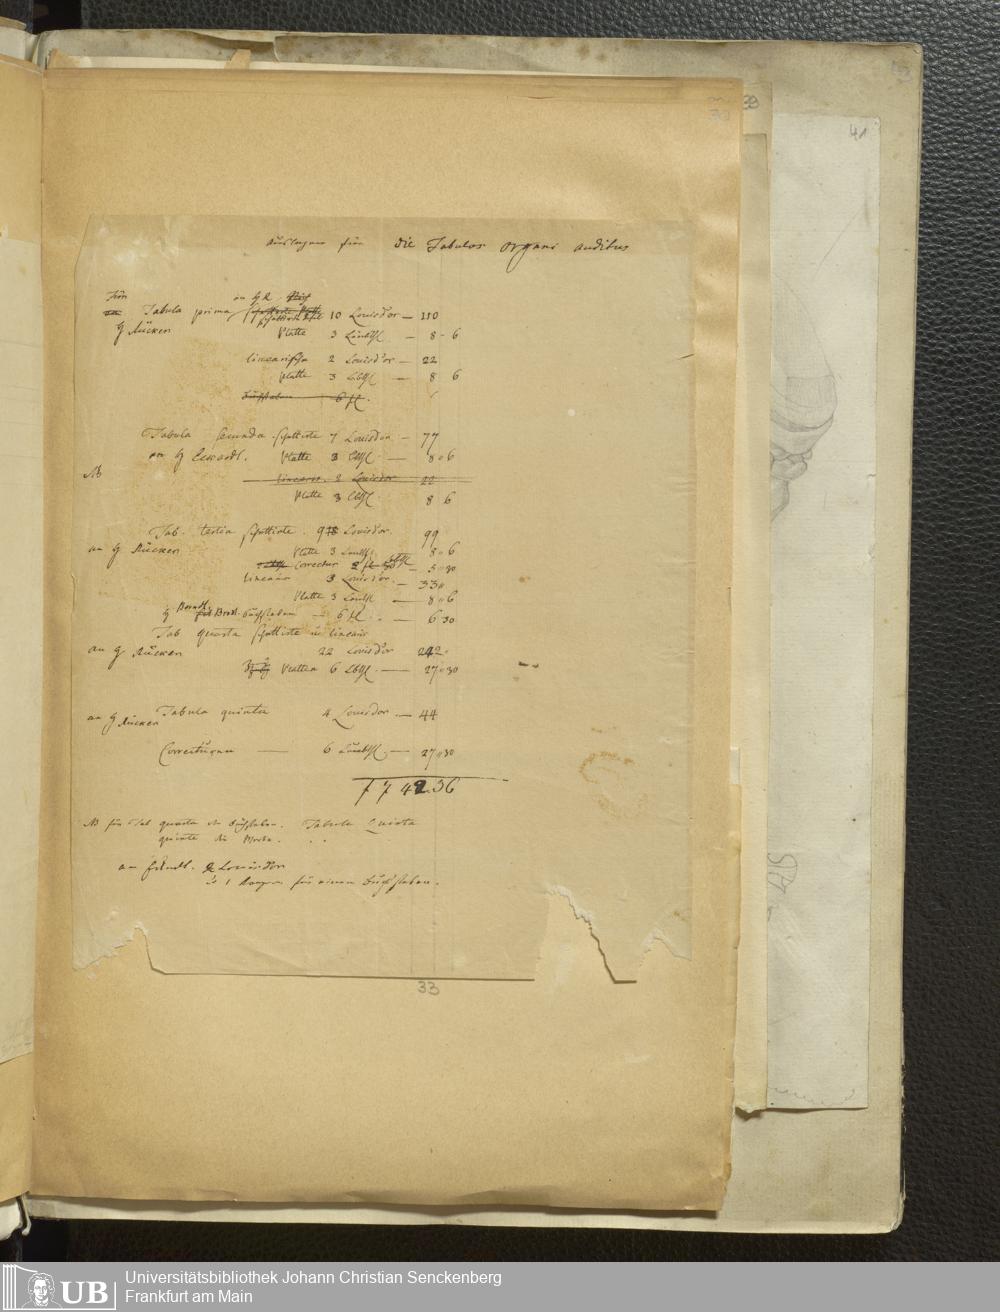 39
41
Auslagen für die Tabulas organi auditus
Für
Tabula prima schattirte Platte 10 Louisdor — 110
H Rücker
Platte 3 Laubthl — 8 - 6
linearische 2 Louisdor — 22
Platte 3 Lbthl — 8 6
Buchstaben 6 fl.
Tabula secunda schattirte 7 Louisdor — 77
an H Eckardt. Platte 3 Lbthl — 8 " 6
NB linearis. 2 Louisdor 22
Platte 3 Lbthl 8 6
Tab. tertia schattirte . 9 Louisdor. 99
an H Rücker Platte 3 Laubthl 8 " 6
Correctur — 5 " 30
linear 3 Louisdor. — 33 "
Platte 3 Laubthl — 8 " 6
Buchstaben — 6 fl. — 6 30
Tab quarta schattirte u linear
an H Rücker 22 Louisdor 242 "
Platten 6 Lbthl — 27 " 30
an H Rücker Tabula quinta 4 Louisdor — 44
Correcturen — 6 Laubthl — 27 " 30
f 742.36
NB für Tab quarta die Buchstaben. Tabula Quinta
quinta die Worte.
an 2 Louisdor
1 für einen Buchstaben.
33
UB
Universitätsbibliothek Johann Christian Senckenberg
Frankfurt am Main